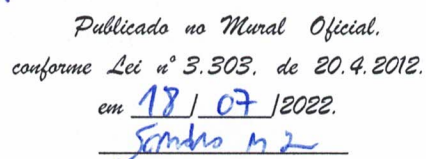 Publicado no Mural Oficial,
conforme Lei nº 3.303, de 20.4.2012.
em 18/07/2022.